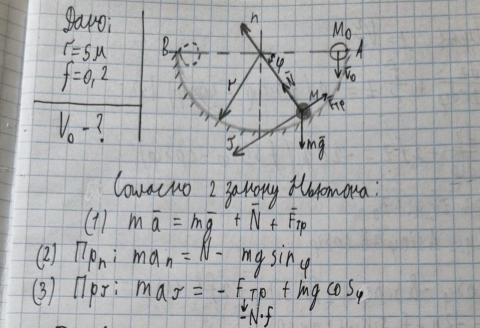 Дано:
r=5м
f=0,2
V₀ - ?
n
M₀
B
A
φ
V₀
r
N̄
M
Fтр
τ̄
mḡ
Согласно 2 закону Ньютона:
(1) mā = mḡ + N̄ + F̄тр
(2) Прn: man = N - mg sinφ
(3) Прτ: maτ = - Fтр + mg cosφ
-N·f